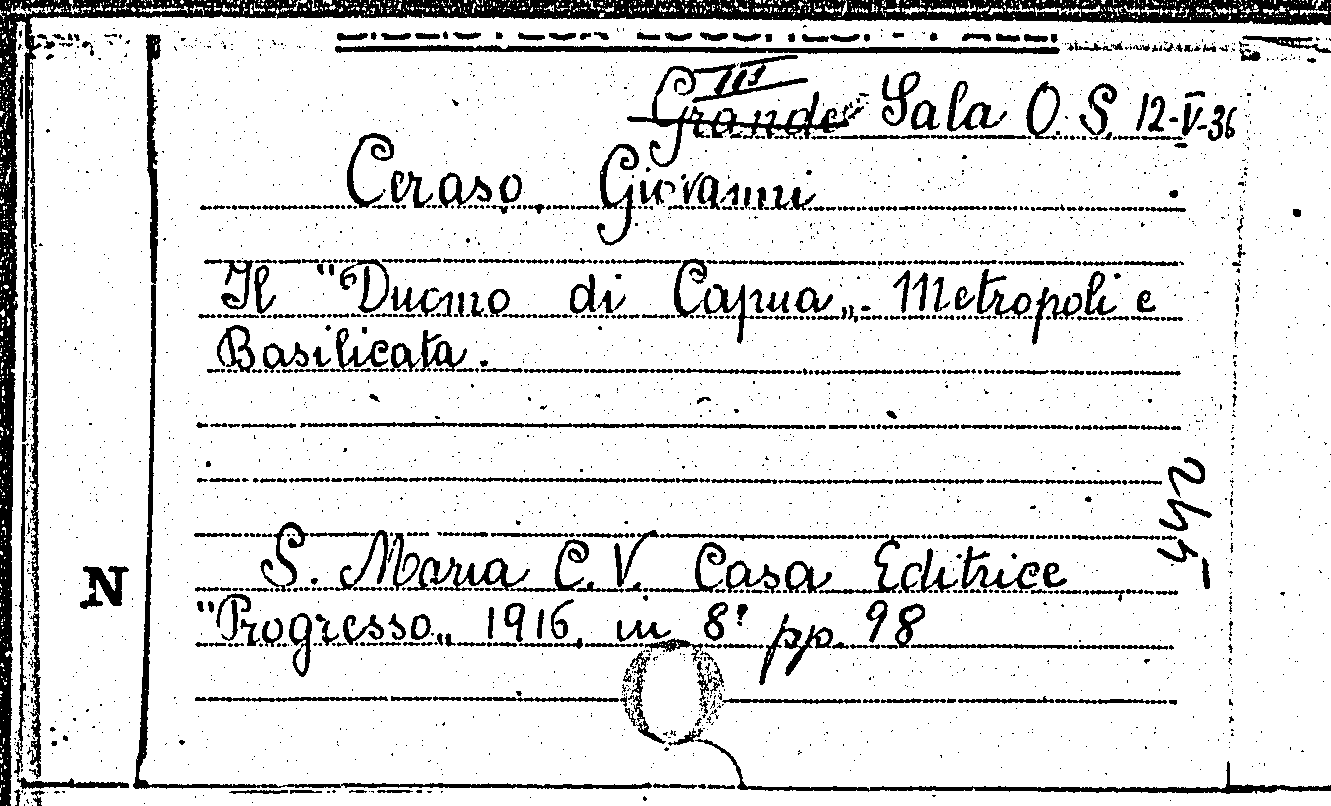 III
Grande Sala O. S. 12-V-36
Ceraso, Giovanni
Il "Duomo di Capua„. Metropoli e
Basilicata.
S. Maria C. V. Casa Editrice
"Progresso„ 1916. in 8° pp. 98
N